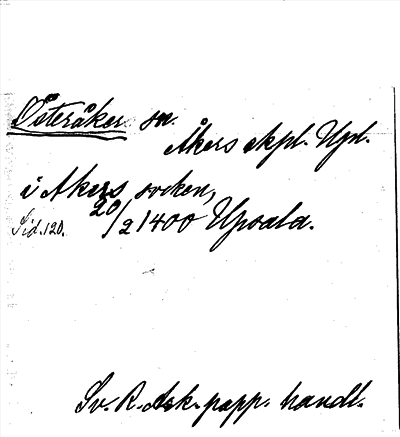 Österåker sn.
Åkers skpl. Upl.
i Akers socken,
Sid. 120. 20/2 1400 Upsala.
Sv. R. Ark. papp. handl.